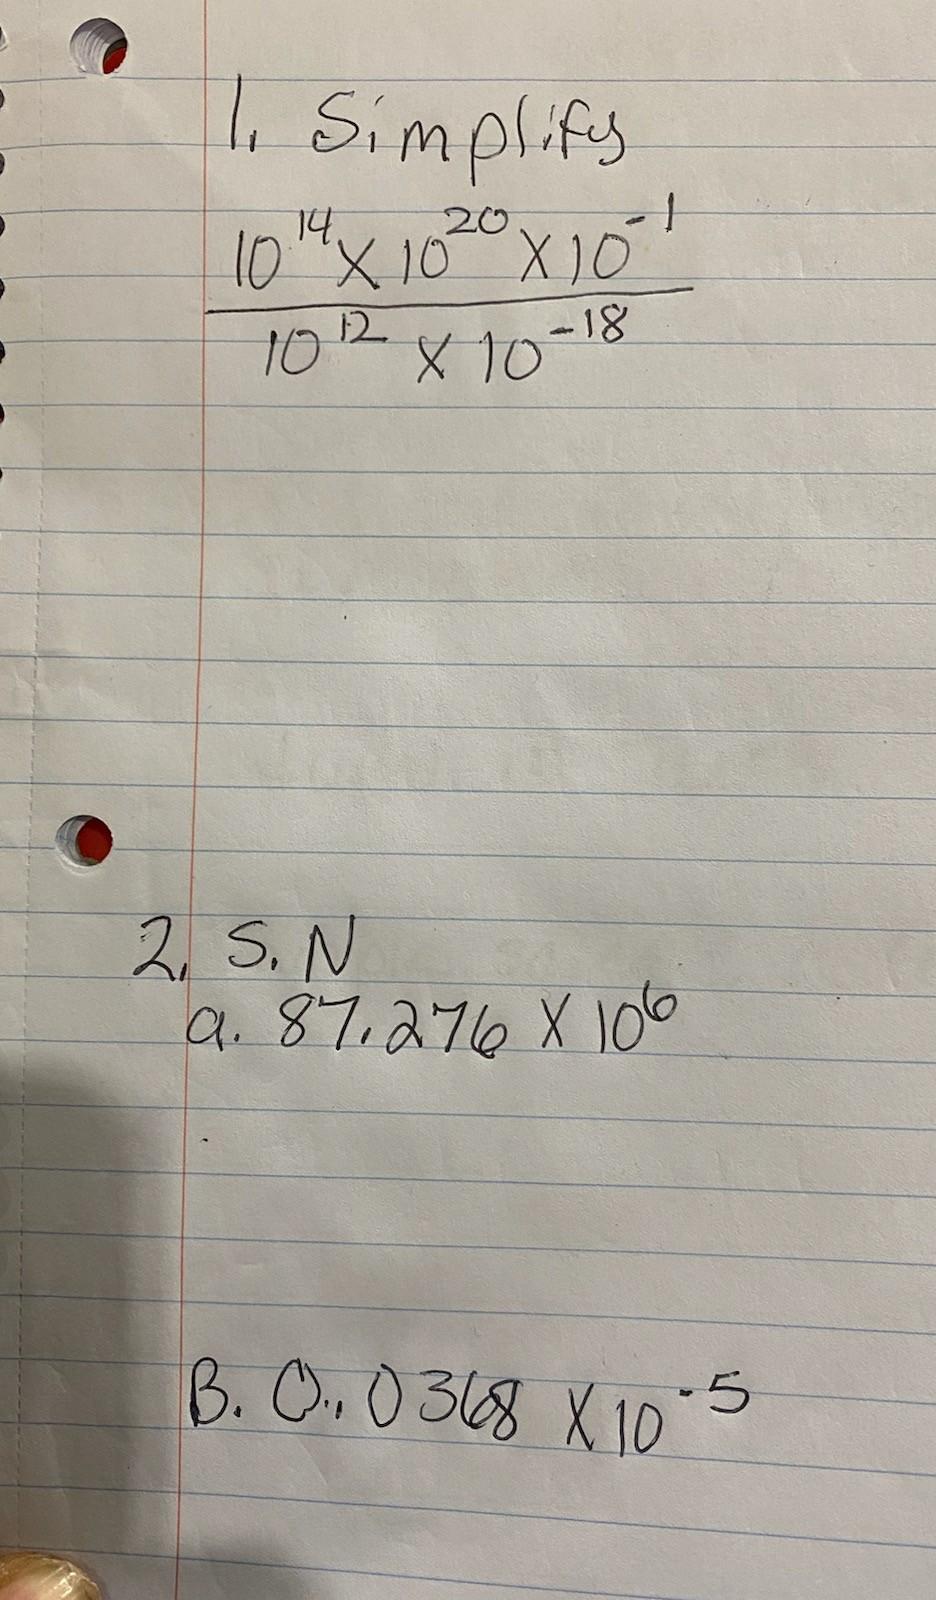 1. Simplify
10¹⁴ X 10²⁰ X 10⁻¹
10¹² X 10⁻¹⁸
2. S. N
a. 87.276 X 10⁶
B. 0.0368 X 10⁻⁵